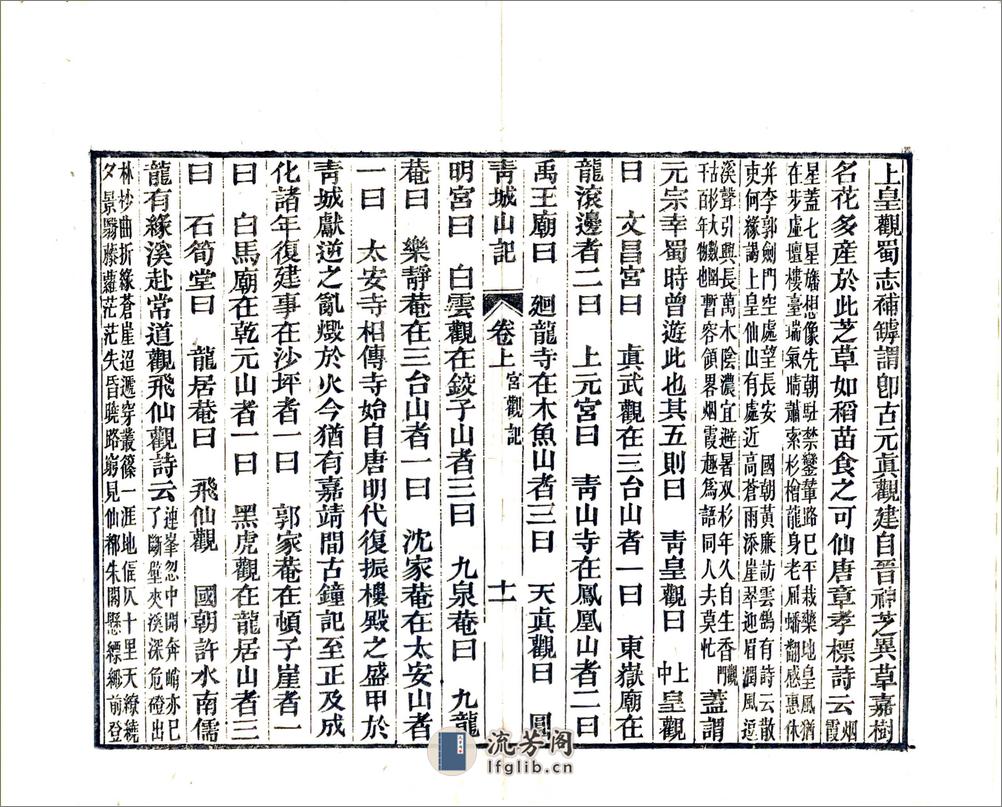 上皇觀蜀志補罅謂卽古元眞觀建自晉神芝異草嘉樹
名花多産於此芝草如稻苗食之可仙唐章孝標詩云烟霞
星蓋七星旛想像先朝駐禁鑾輦路已平栽藥地皇風猶
在步虛壇樓臺瑞氣晴蕭索杉檜龍身老屈蟠翻感惠休
并李郭劍門空處望長安 國朝黃廉訪雲鵠有詩云散
吏何緣謁上皇仙山有處近高蒼雨添崖翠迎眉潤風逗
溪聲引興長萬木陰濃宜避暑双杉年久自生香觀門
古杉大數圍百年物也暫容領畧烟霞趣爲語同人夫莫忙 蓋謂
元宗幸蜀時曾遊此也其五則曰 靑皇觀曰 上皇觀 中
曰 文昌宮曰 眞武觀在三台山者一曰 東嶽廟在
龍滾邊者二曰 上元宮曰 靑山寺在鳳凰山者二曰
禹王廟曰 廻龍寺在木魚山者三曰 天眞觀曰 圓
靑城山記 卷上 宮觀記 十一
明宮曰 白雲觀在鉸子山者三曰 九泉菴曰 九龍
菴曰 樂靜菴在三台山者一曰 沈家菴在太安山者
一曰 太安寺相傳寺始自唐明代復振樓殿之盛甲於
靑城獻逆之亂燬於火今猶有嘉靖間古鐘記至正及成
化諸年復建事在沙坪者一曰 郭家菴在頓子崖者一
曰 白馬廟在乾元山者一曰 黑虎觀在龍居山者三
曰 石筍堂曰 龍居菴曰 飛仙觀 國朝許水南儒
龍有緣溪赴常道觀飛仙觀詩云連峯忽中開奔峭亦已
了斷壁夾溪深危磴出
林杪曲折緣蒼崖迢遞穿叢篠一涯地偪仄十里天繚繞
夕景翳藤蘿茫茫失昏曉路窮見仙都朱閣懸縹緲前登
流芳阁
lfglib.cn